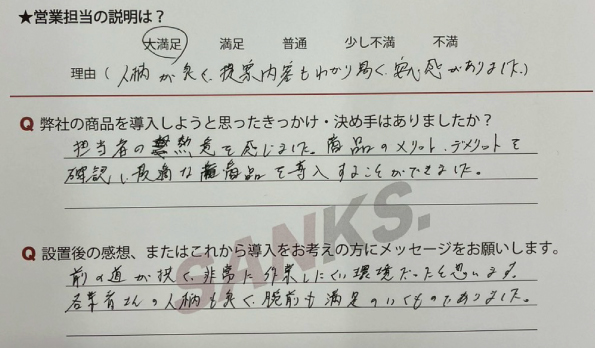 ★営業担当の説明は？
大満足 満足 普通 少し不満 不満
理由（人柄が良く、提案内容もわかり易く、安心感がありました。）
Q 弊社の商品を導入しようと思ったきっかけ・決め手はありましたか？
担当者の熱意を感じました。商品のメリット、デメリットを
確認し最適な商品を導入することができました。
Q 設置後の感想、またはこれから導入をお考えの方にメッセージをお願いします。
前の道が狭く、非常に作業しにくい環境だったと思います。
各業者さんの人柄も良く、腕前も満足のいくものでありました。
SANKS.